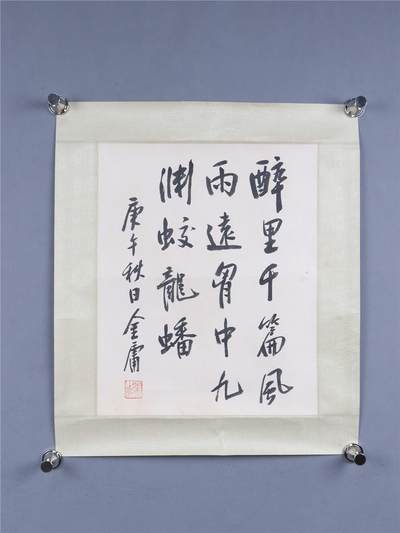 醉里千篇風
雨遠胷中九
渊蛟龍蟠
庚午秋日金庸